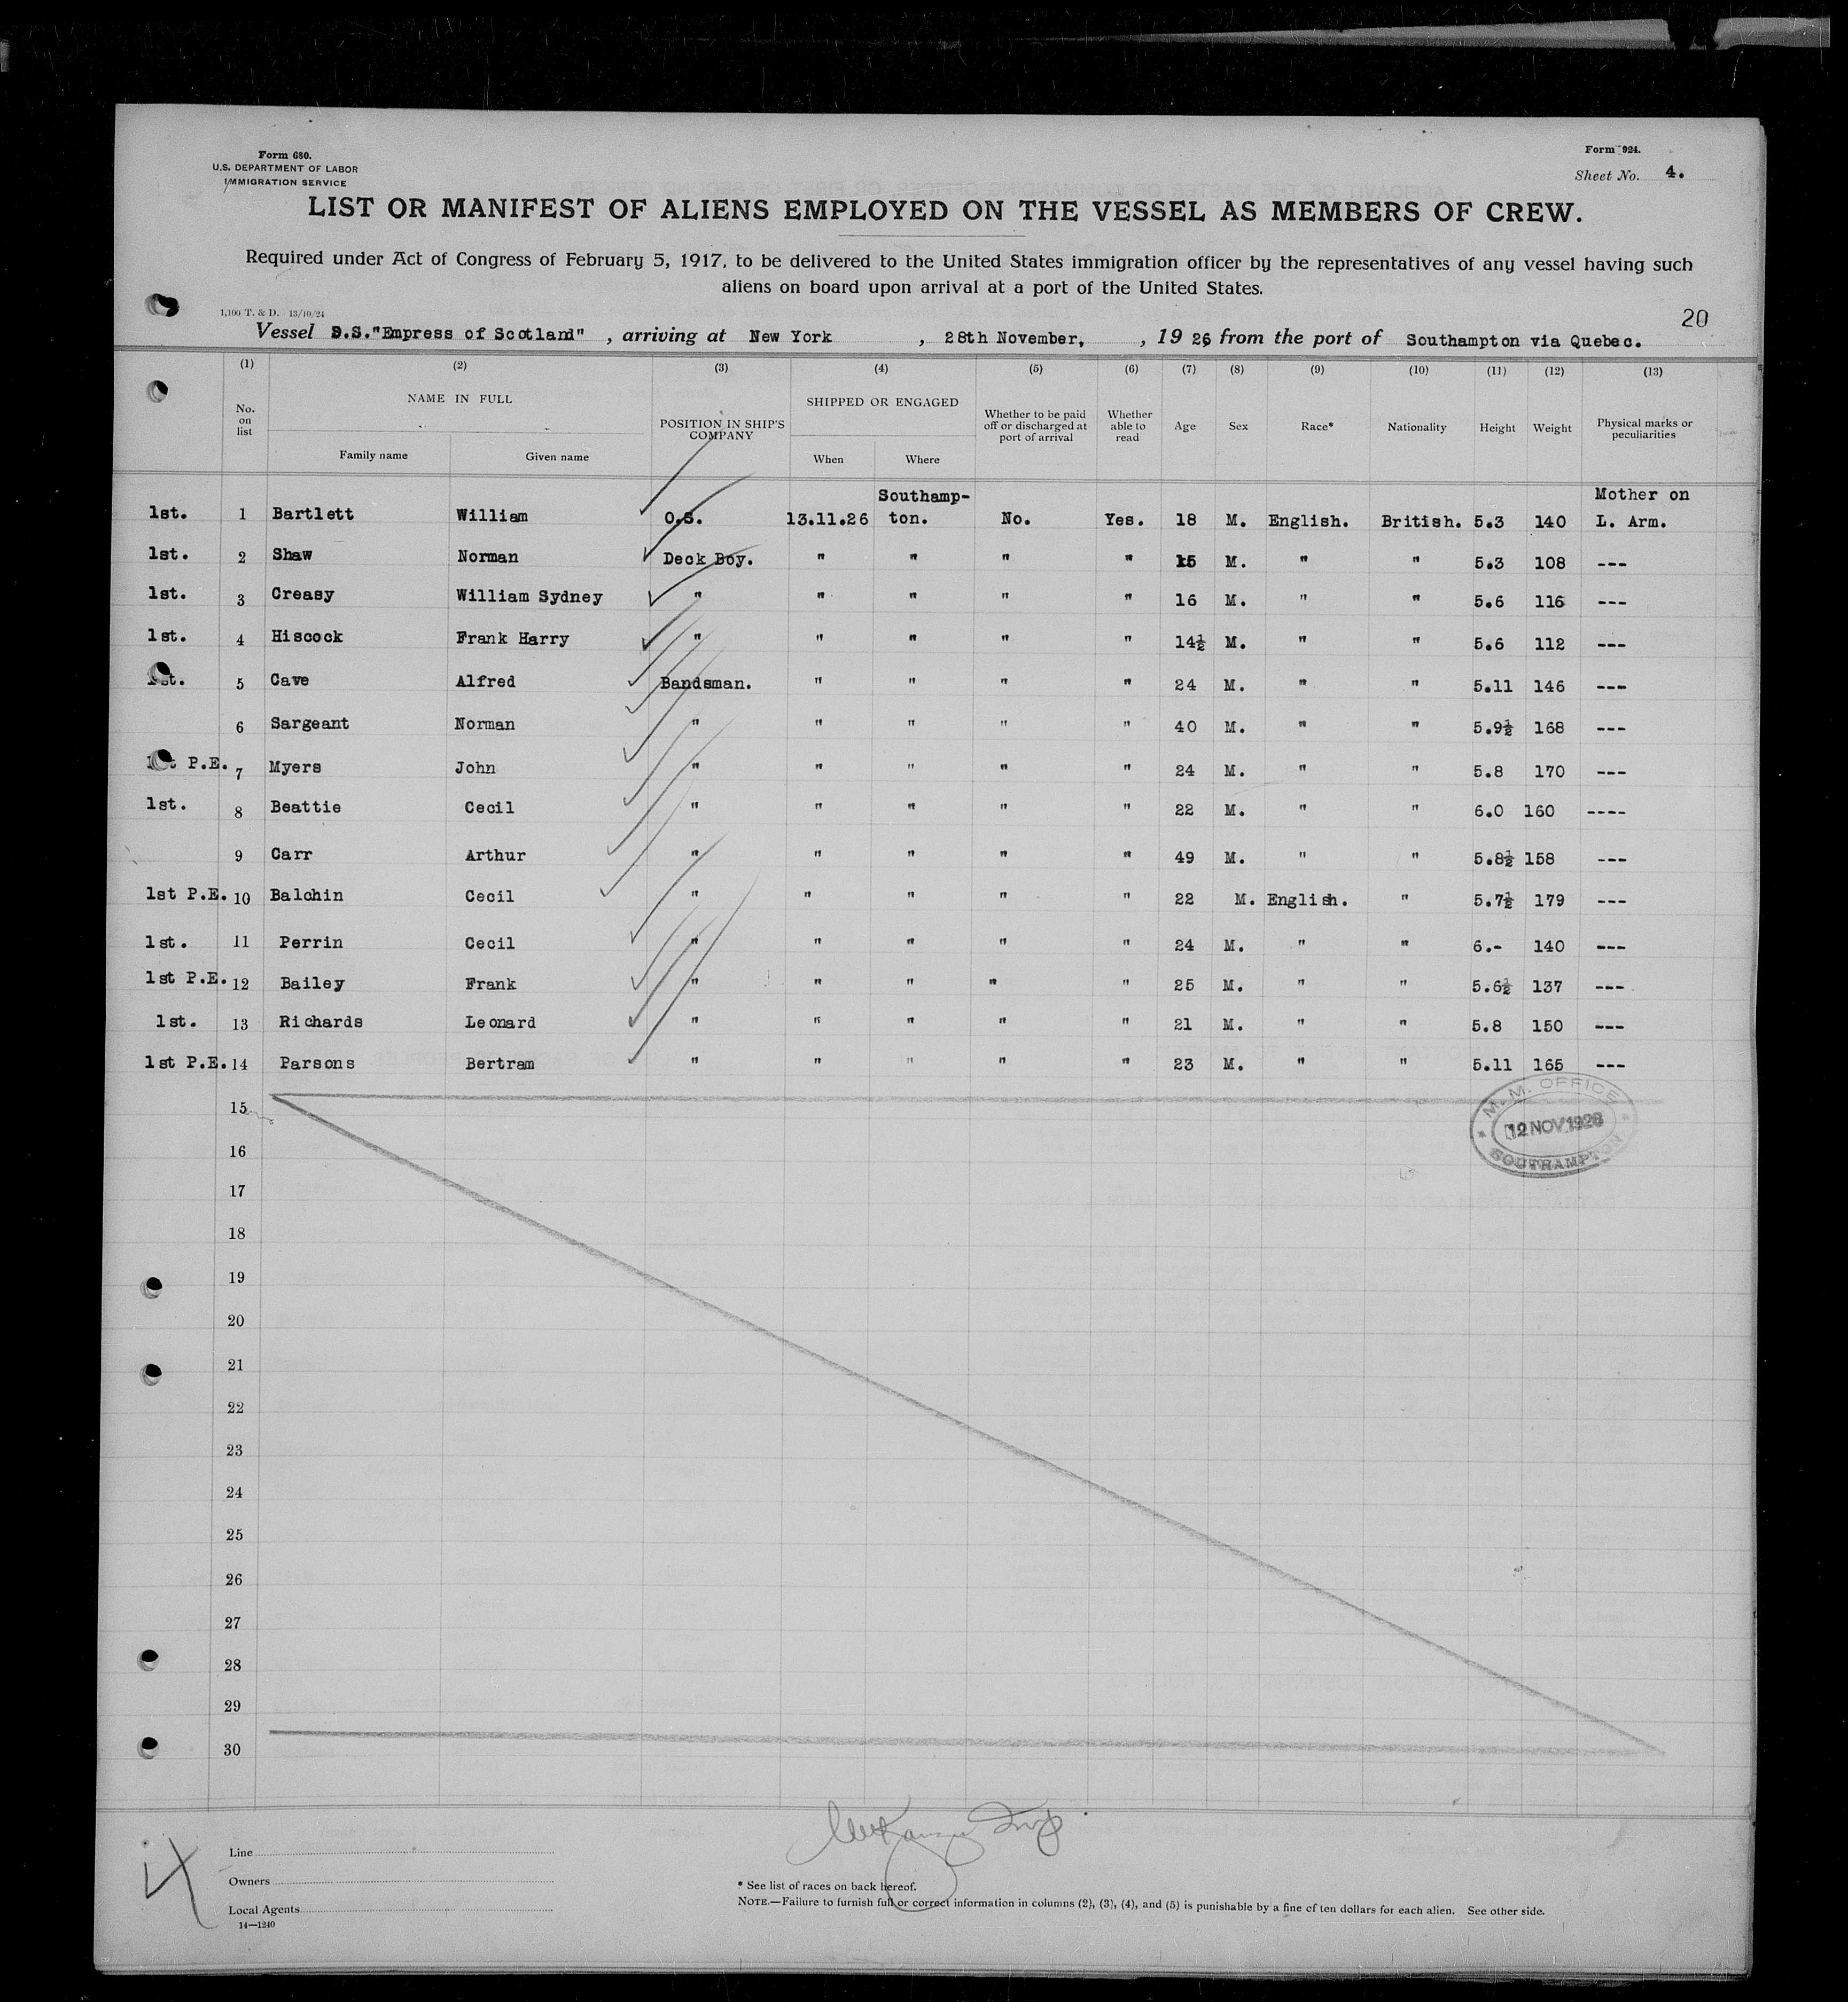 Form 680.
U.S. DEPARTMENT OF LABOR
IMMIGRATION SERVICE
Form 924.
Sheet No. 4.
LIST OR MANIFEST OF ALIENS EMPLOYED ON THE VESSEL AS MEMBERS OF CREW.
Required under Act of Congress of February 5, 1917, to be delivered to the United States immigration officer by the representatives of any vessel having such
aliens on board upon arrival at a port of the United States.
1,100 T. & D. 13/10/24
20
Vessel S.S."Empress of Scotland" , arriving at New York , 28th November, , 1926 from the port of Southampton via Quebec.
(1) (2) (3) (4) (5) (6) (7) (8) (9) (10) (11) (12) (13)
No. on list NAME IN FULL Family name Given name POSITION IN SHIP'S COMPANY SHIPPED OR ENGAGED When Where Whether to be paid off or discharged at port of arrival Whether able to read Age Sex Race* Nationality Height Weight Physical marks or peculiarities
1st. 1 Bartlett William O.S. 13.11.26 Southamp-ton. No. Yes. 18 M. English. British. 5.3 140 Mother on L. Arm.
1st. 2 Shaw Norman Deck Boy. " " " " 15 M. " " 5.3 108 ---
1st. 3 Creasy William Sydney " " " " " 16 M. " " 5.6 116 ---
1st. 4 Hiscock Frank Harry " " " " " 14½ M. " " 5.6 112 ---
1st. 5 Cave Alfred Bandsman. " " " " 24 M. " " 5.11 146 ---
6 Sargeant Norman " " " " " 40 M. " " 5.9½ 168 ---
1st P.E. 7 Myers John " " " " " 24 M. " " 5.8 170 ---
1st. 8 Beattie Cecil " " " " " 22 M. " " 6.0 160 ----
9 Carr Arthur " " " " " 49 M. " " 5.8½ 158 ---
1st P.E. 10 Balchin Cecil " " " " " 22 M. English. " 5.7½ 179 ---
1st. 11 Perrin Cecil " " " " " 24 M. " " 6.- 140 ---
1st P.E. 12 Bailey Frank " " " " " 25 M. " " 5.6½ 137 ---
1st. 13 Richards Leonard " " " " " 21 M. " " 5.8 150 ---
1st P.E. 14 Parsons Bertram " " " " " 23 M. " " 5.11 165 ---
15
M. M. OFFICE
12 NOV 1926
SOUTHAMPTON
16
17
18
19
20
21
22
23
24
25
26
27
28
29
30
Line
Owners
Local Agents
14—1240
* See list of races on back hereof.
NOTE.—Failure to furnish full or correct information in columns (2), (3), (4), and (5) is punishable by a fine of ten dollars for each alien. See other side.